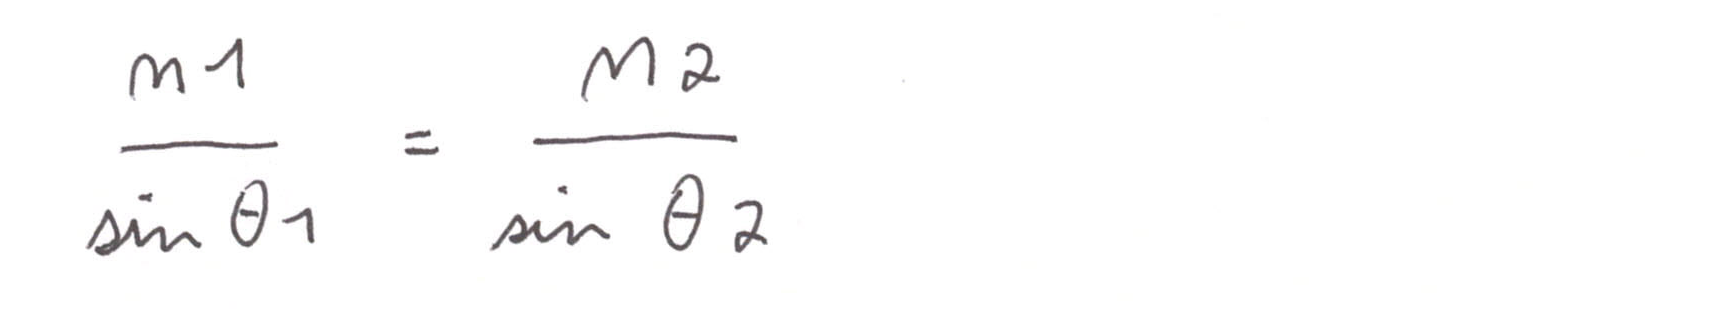 n1 / sin θ1 = n2 / sin θ2